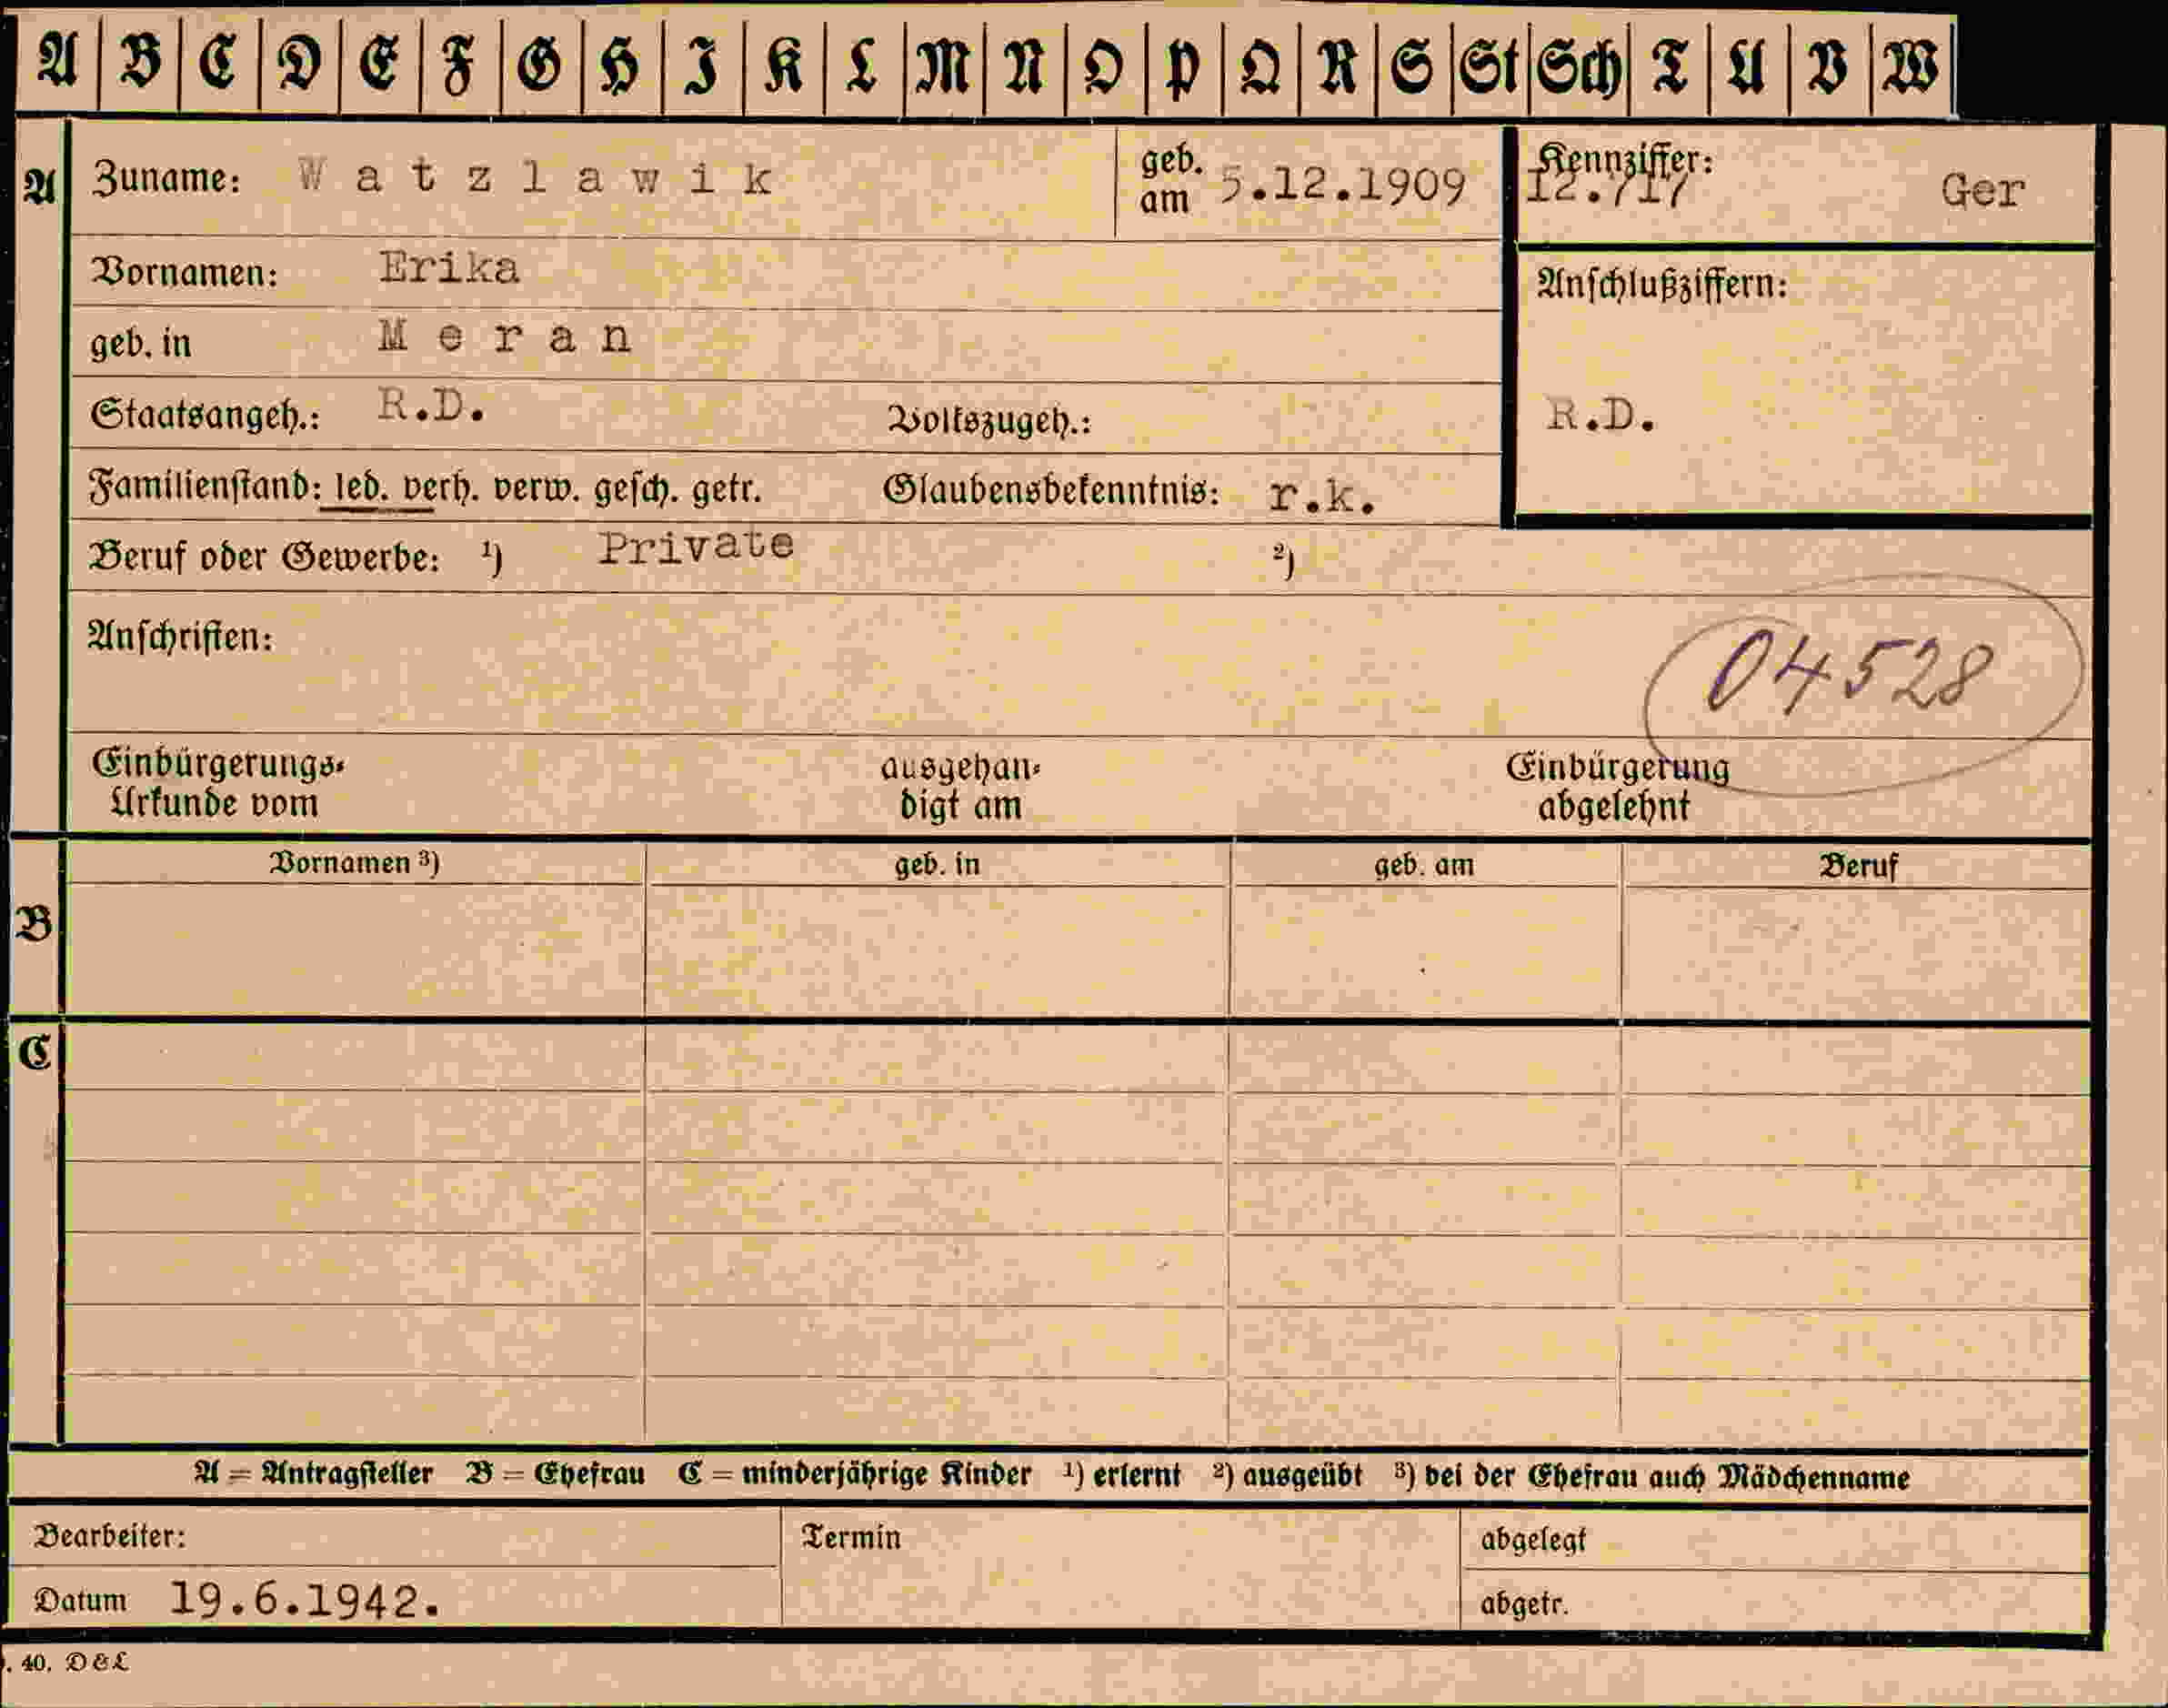 A B C D E F G H I K L M N O P Q R S St Sch T U V W
A Zuname: Watzlawik geb. am 5.12.1909 Kennziffer: 12.717 Ger
Vornamen: Erika
Anschlußziffern:
geb. in Meran
Staatsangeh.: R.D. Volkszugeh.: R.D.
Familienstand: led. verh. verw. gesch. getr. Glaubensbekenntnis: r.k.
Beruf oder Gewerbe: ¹) Private ²)
Anschriften: 04528
Einbürgerungs- ausgehän- Einbürgerung
Urkunde vom digt am abgelehnt
Vornamen ³) geb. in geb. am Beruf
B
C
A = Antragsteller B = Ehefrau C = minderjährige Kinder ¹) erlernt ²) ausgeübt ³) bei der Ehefrau auch Mädchenname
Bearbeiter: Termin abgelegt
Datum 19.6.1942. abgetr.
. 40. D & L